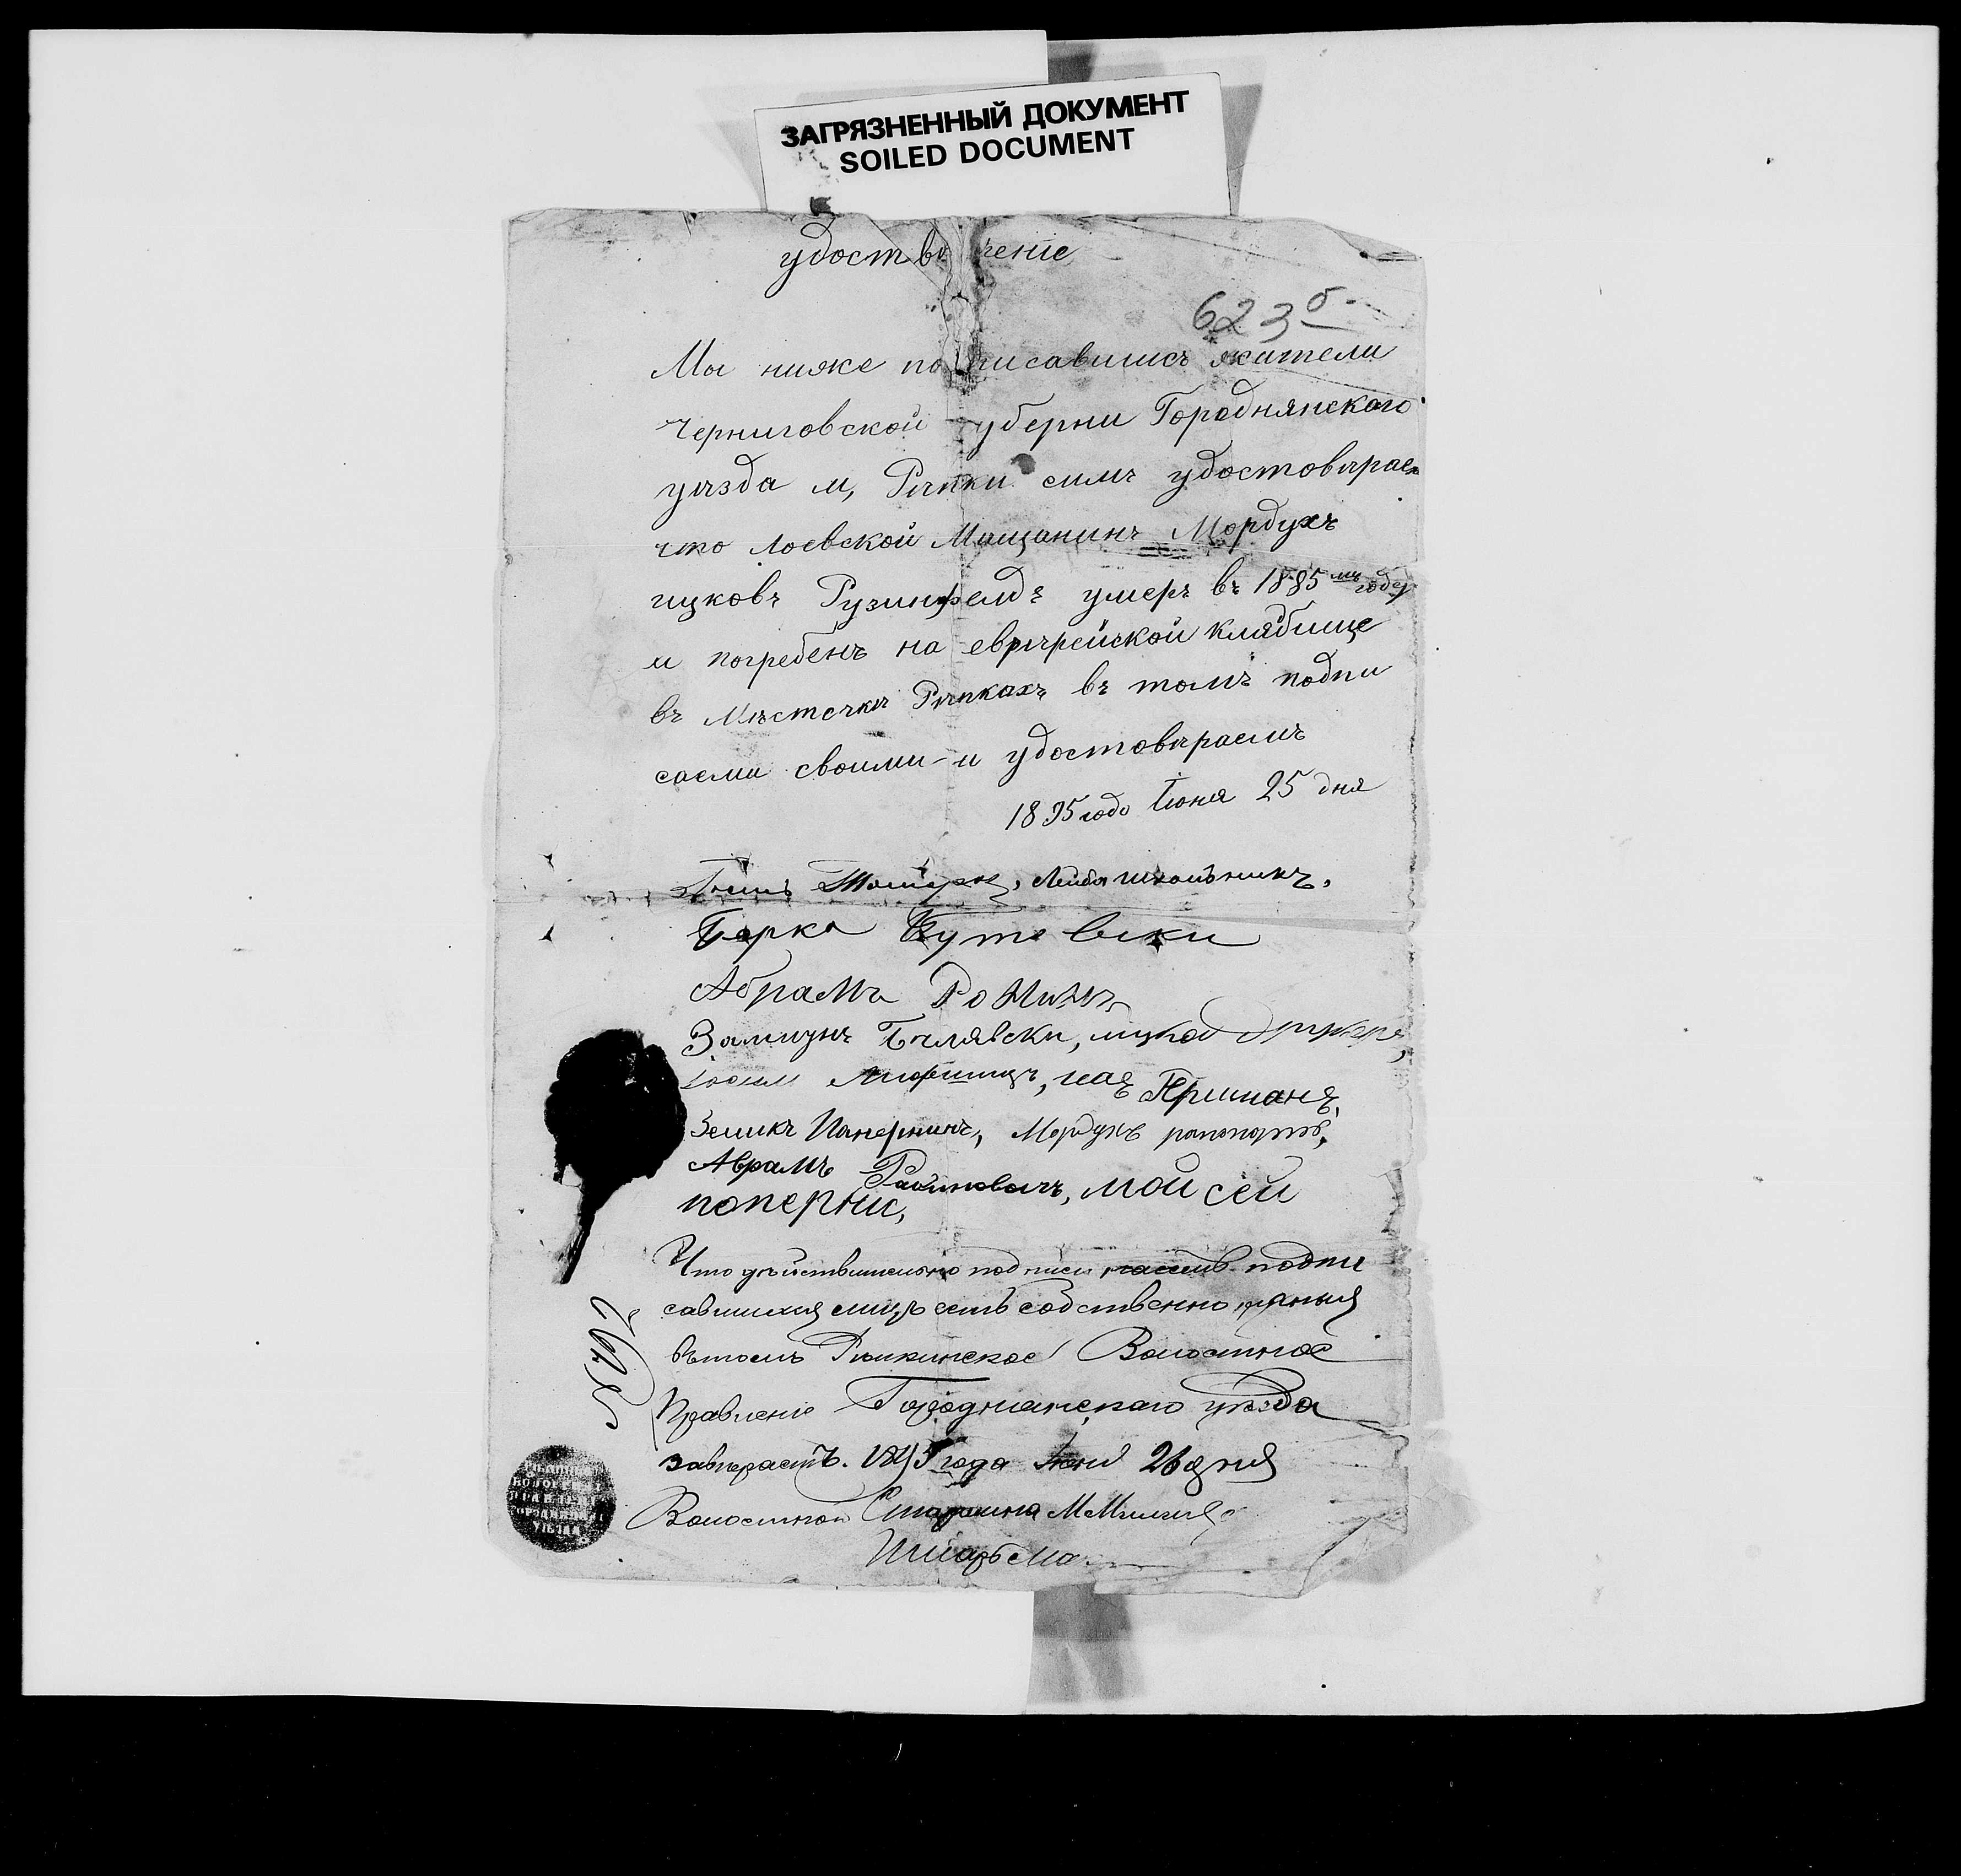 ЗАГРЯЗНЕННЫЙ ДОКУМЕНТ
SOILED DOCUMENT
удоствѣ ченіе
623 б.
Мы ниже подписавшись жители
Черниговской губерни Городнянскаго
уѣзда м, Рѣпки симъ удостовѣраем
что лоевской Мѣщанинъ Мордухъ
ицковъ Рузинфелдъ умеръ въ 1885 мъ году
и погребенъ на еврѣрейской кладбище
въ Мѣстечкѣ Рѣпкахъ въ томъ подпи
саеми своими и удостовѣраемъ
1895 годо Iюня 25 дня
Лейба школьникъ,
Берка Буте вски
Абрамъ Ронинъ
Замшунъ Бѣлявски, ицкой
Гершанъ,
Мордухъ рапопортъ,
Абрамъ Рабиновичъ, мойсей
поперни,
Что дѣйствительно подписи подпи
савшихся лицъ есть собственно ручныя
въ томъ Рѣпкинское Волостное
Правленіе Городнянскаго уѣзда
завѣраетъ. 1895 года Iюня 26 дня
Волостной Старшина М
Писарь
ВОЛОСТН
ПРАВЛЕН
УѢЗДА